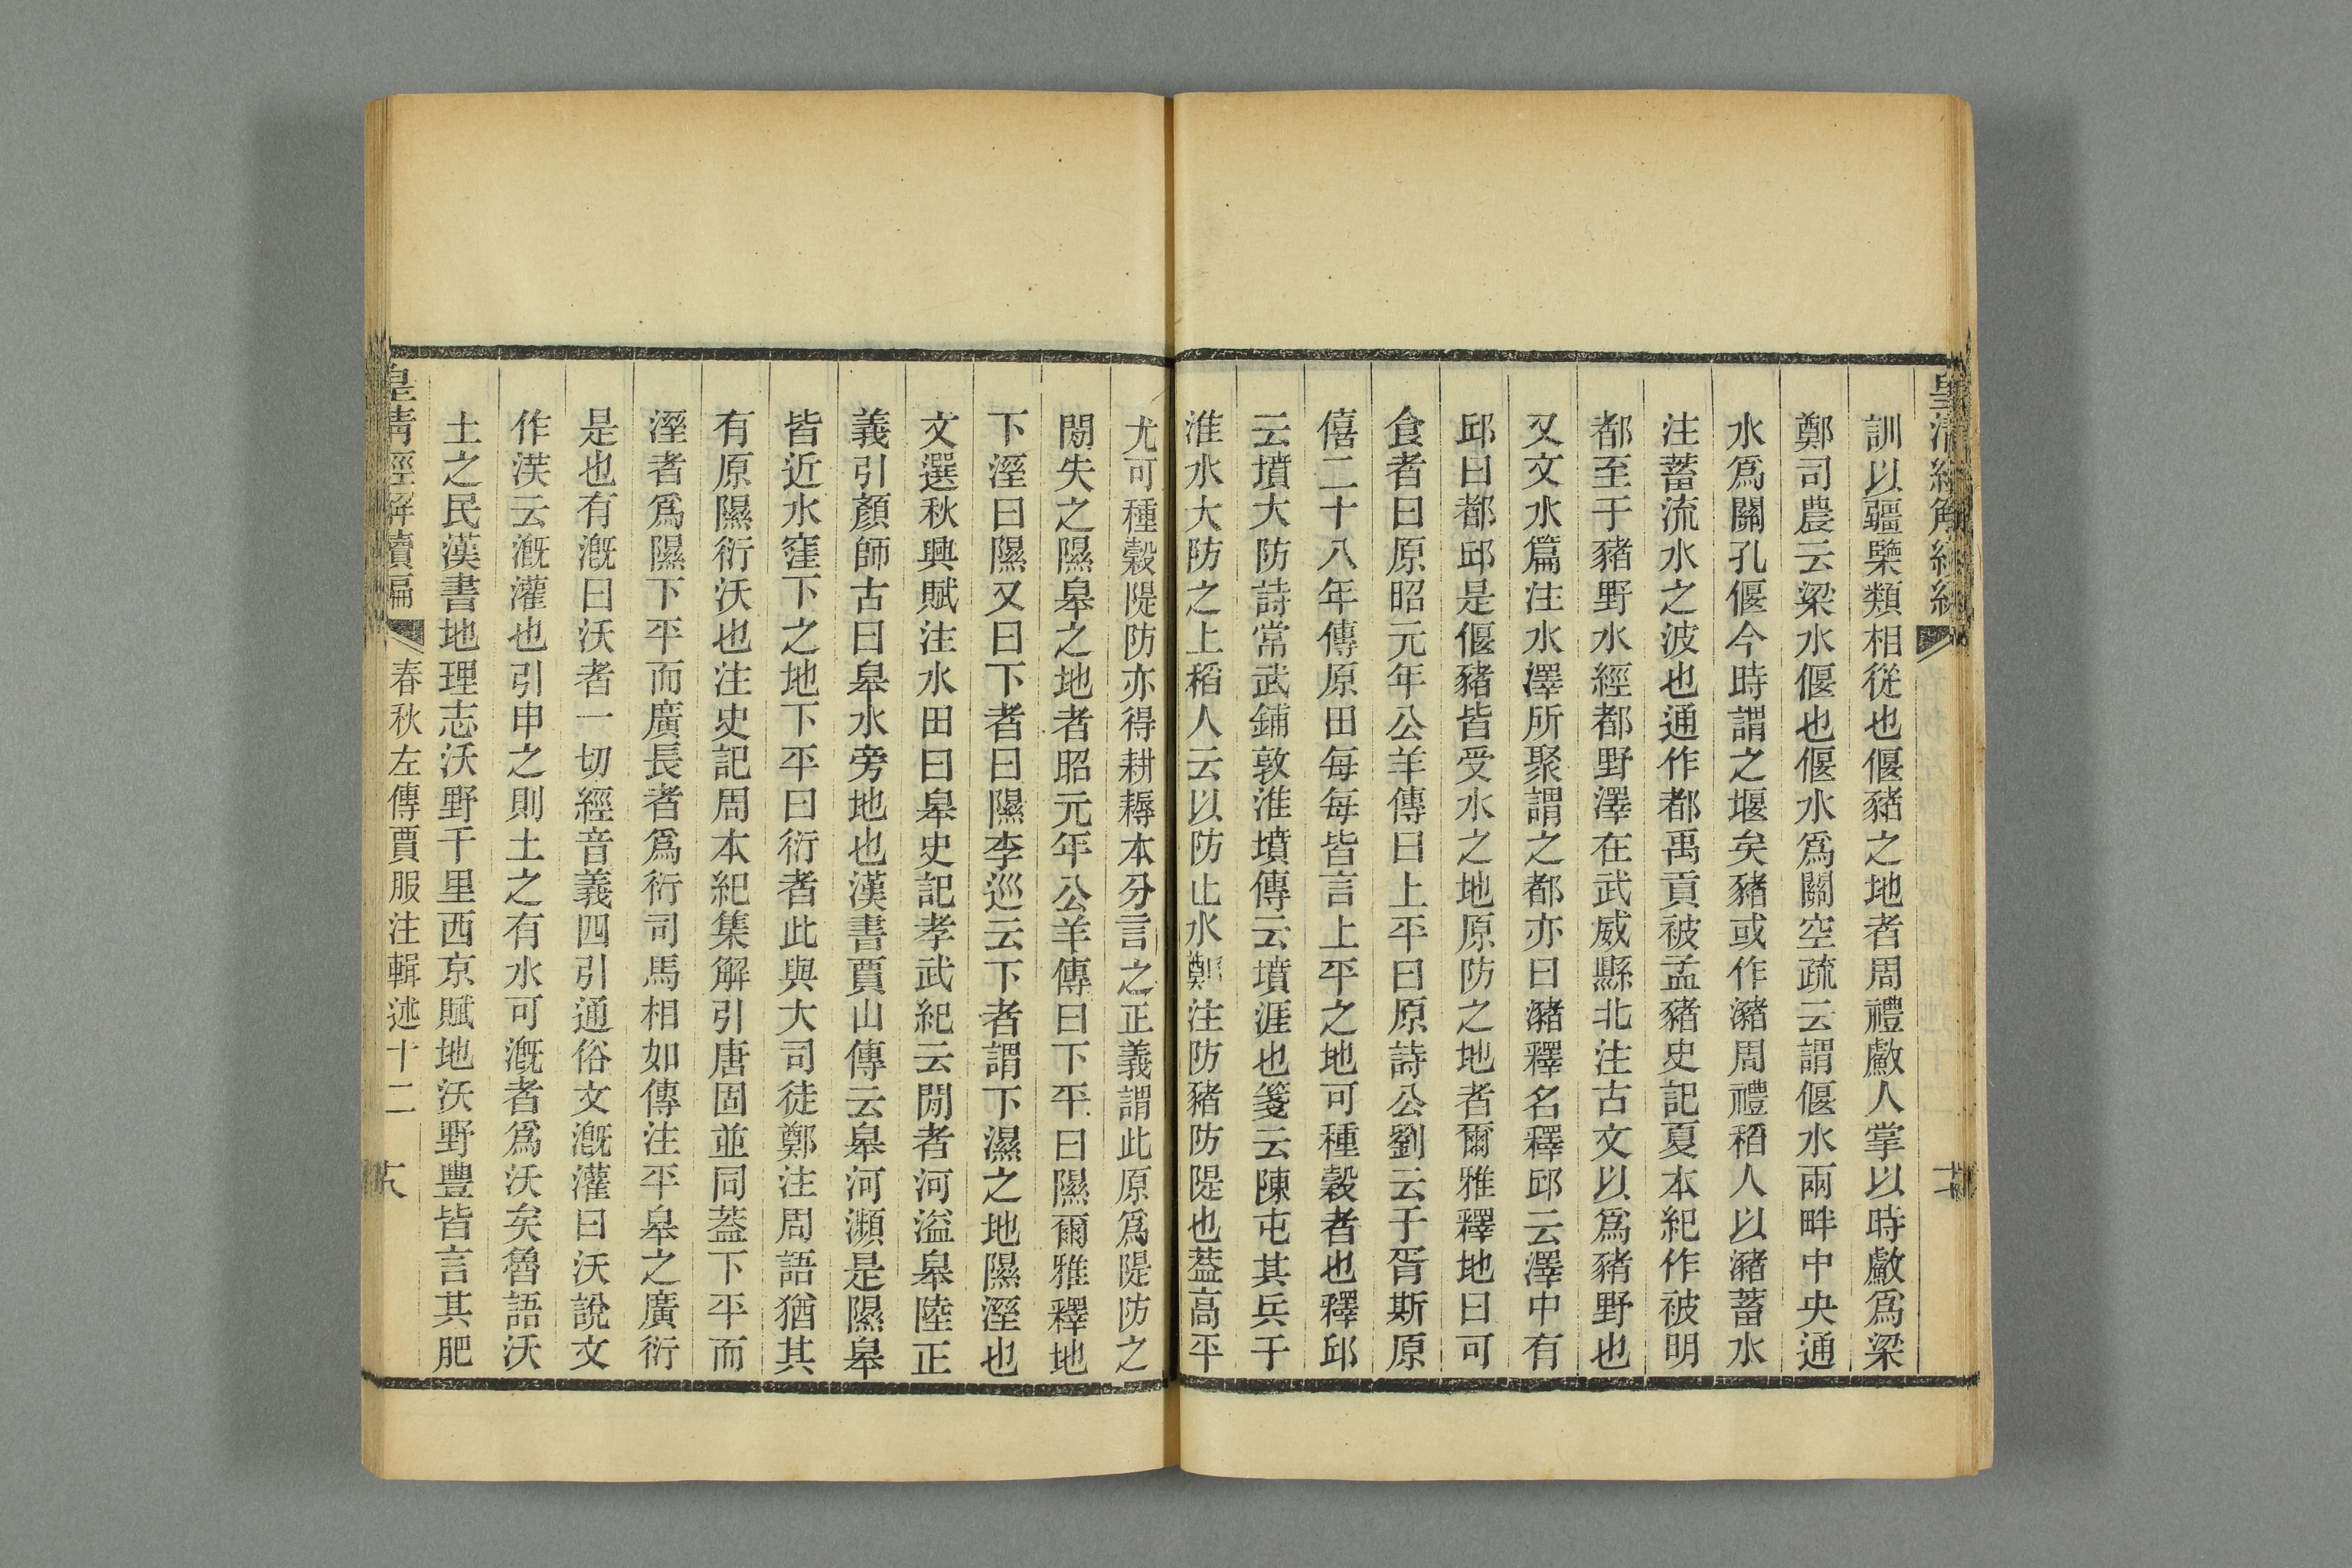 訓以疆㯺類相從也偃豬之地者周禮䱷人掌以時䱷爲梁
鄭司農云梁水偃也偃水爲關空疏云謂偃水兩畔中央通
水爲關孔偃今時謂之堰矣豬或作瀦周禮稻人以瀦蓄水
注蓄流水之波也通作都禹貢被孟豬史記夏本紀作被明
都至于豬野水經都野澤在武威縣北注古文以爲豬野也
又文水篇注水澤所聚謂之都亦曰瀦釋名釋邱云澤中有
邱曰都邱是偃豬皆受水之地原防之地者爾雅釋地曰可
食者曰原昭元年公羊傳曰上平曰原詩公劉云于胥斯原
僖二十八年傳原田每每皆言上平之地可種穀者也釋邱
云墳大防詩常武鋪敦淮墳傳云墳涯也箋云陳屯其兵于
淮水大防之上稻人云以防止水鄭注防豬防隄也蓋高平
尤可種穀隄防亦得耕耨本分言之正義謂此原爲隄防之
閒失之隰皋之地者昭元年公羊傳曰下平曰隰爾雅釋地
下溼曰隰又曰下者曰隰李巡云下者謂下濕之地隰溼也
文選秋興賦注水田曰皋史記孝武紀云閒者河溢皋陸正
義引顏師古曰皋水旁地也漢書賈山傳云皋河瀕是隰皋
皆近水窪下之地下平曰衍者此與大司徒鄭注周語猶其
有原隰衍沃也注史記周本紀集解引唐固並同蓋下平而
溼者爲隰下平而廣長者爲衍司馬相如傳注平皋之廣衍
是也有漑曰沃者一切經音義四引通俗文漑灌曰沃說文
作渶云漑灌也引申之則土之有水可漑者爲沃矣魯語沃
土之民漢書地理志沃野千里西京賦地沃野豐皆言其肥
皇清經解續編 春秋左傳賈服注輯述十二 十八